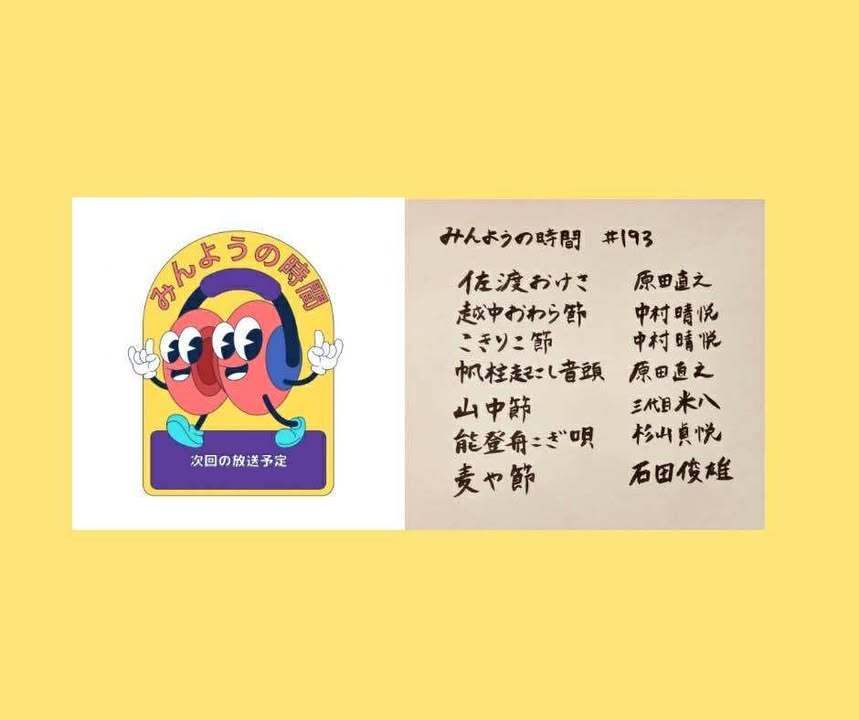 みんようの時間
次回の放送予定
みんようの時間 #193
佐渡おけさ 原田直之
越中おわら節 中村晴悦
こきりこ節 中村晴悦
帆柱起こし音頭 原田直之
山中節 三代目米八
能登舟こぎ唄 杉山貞悦
麦や節 石田俊雄